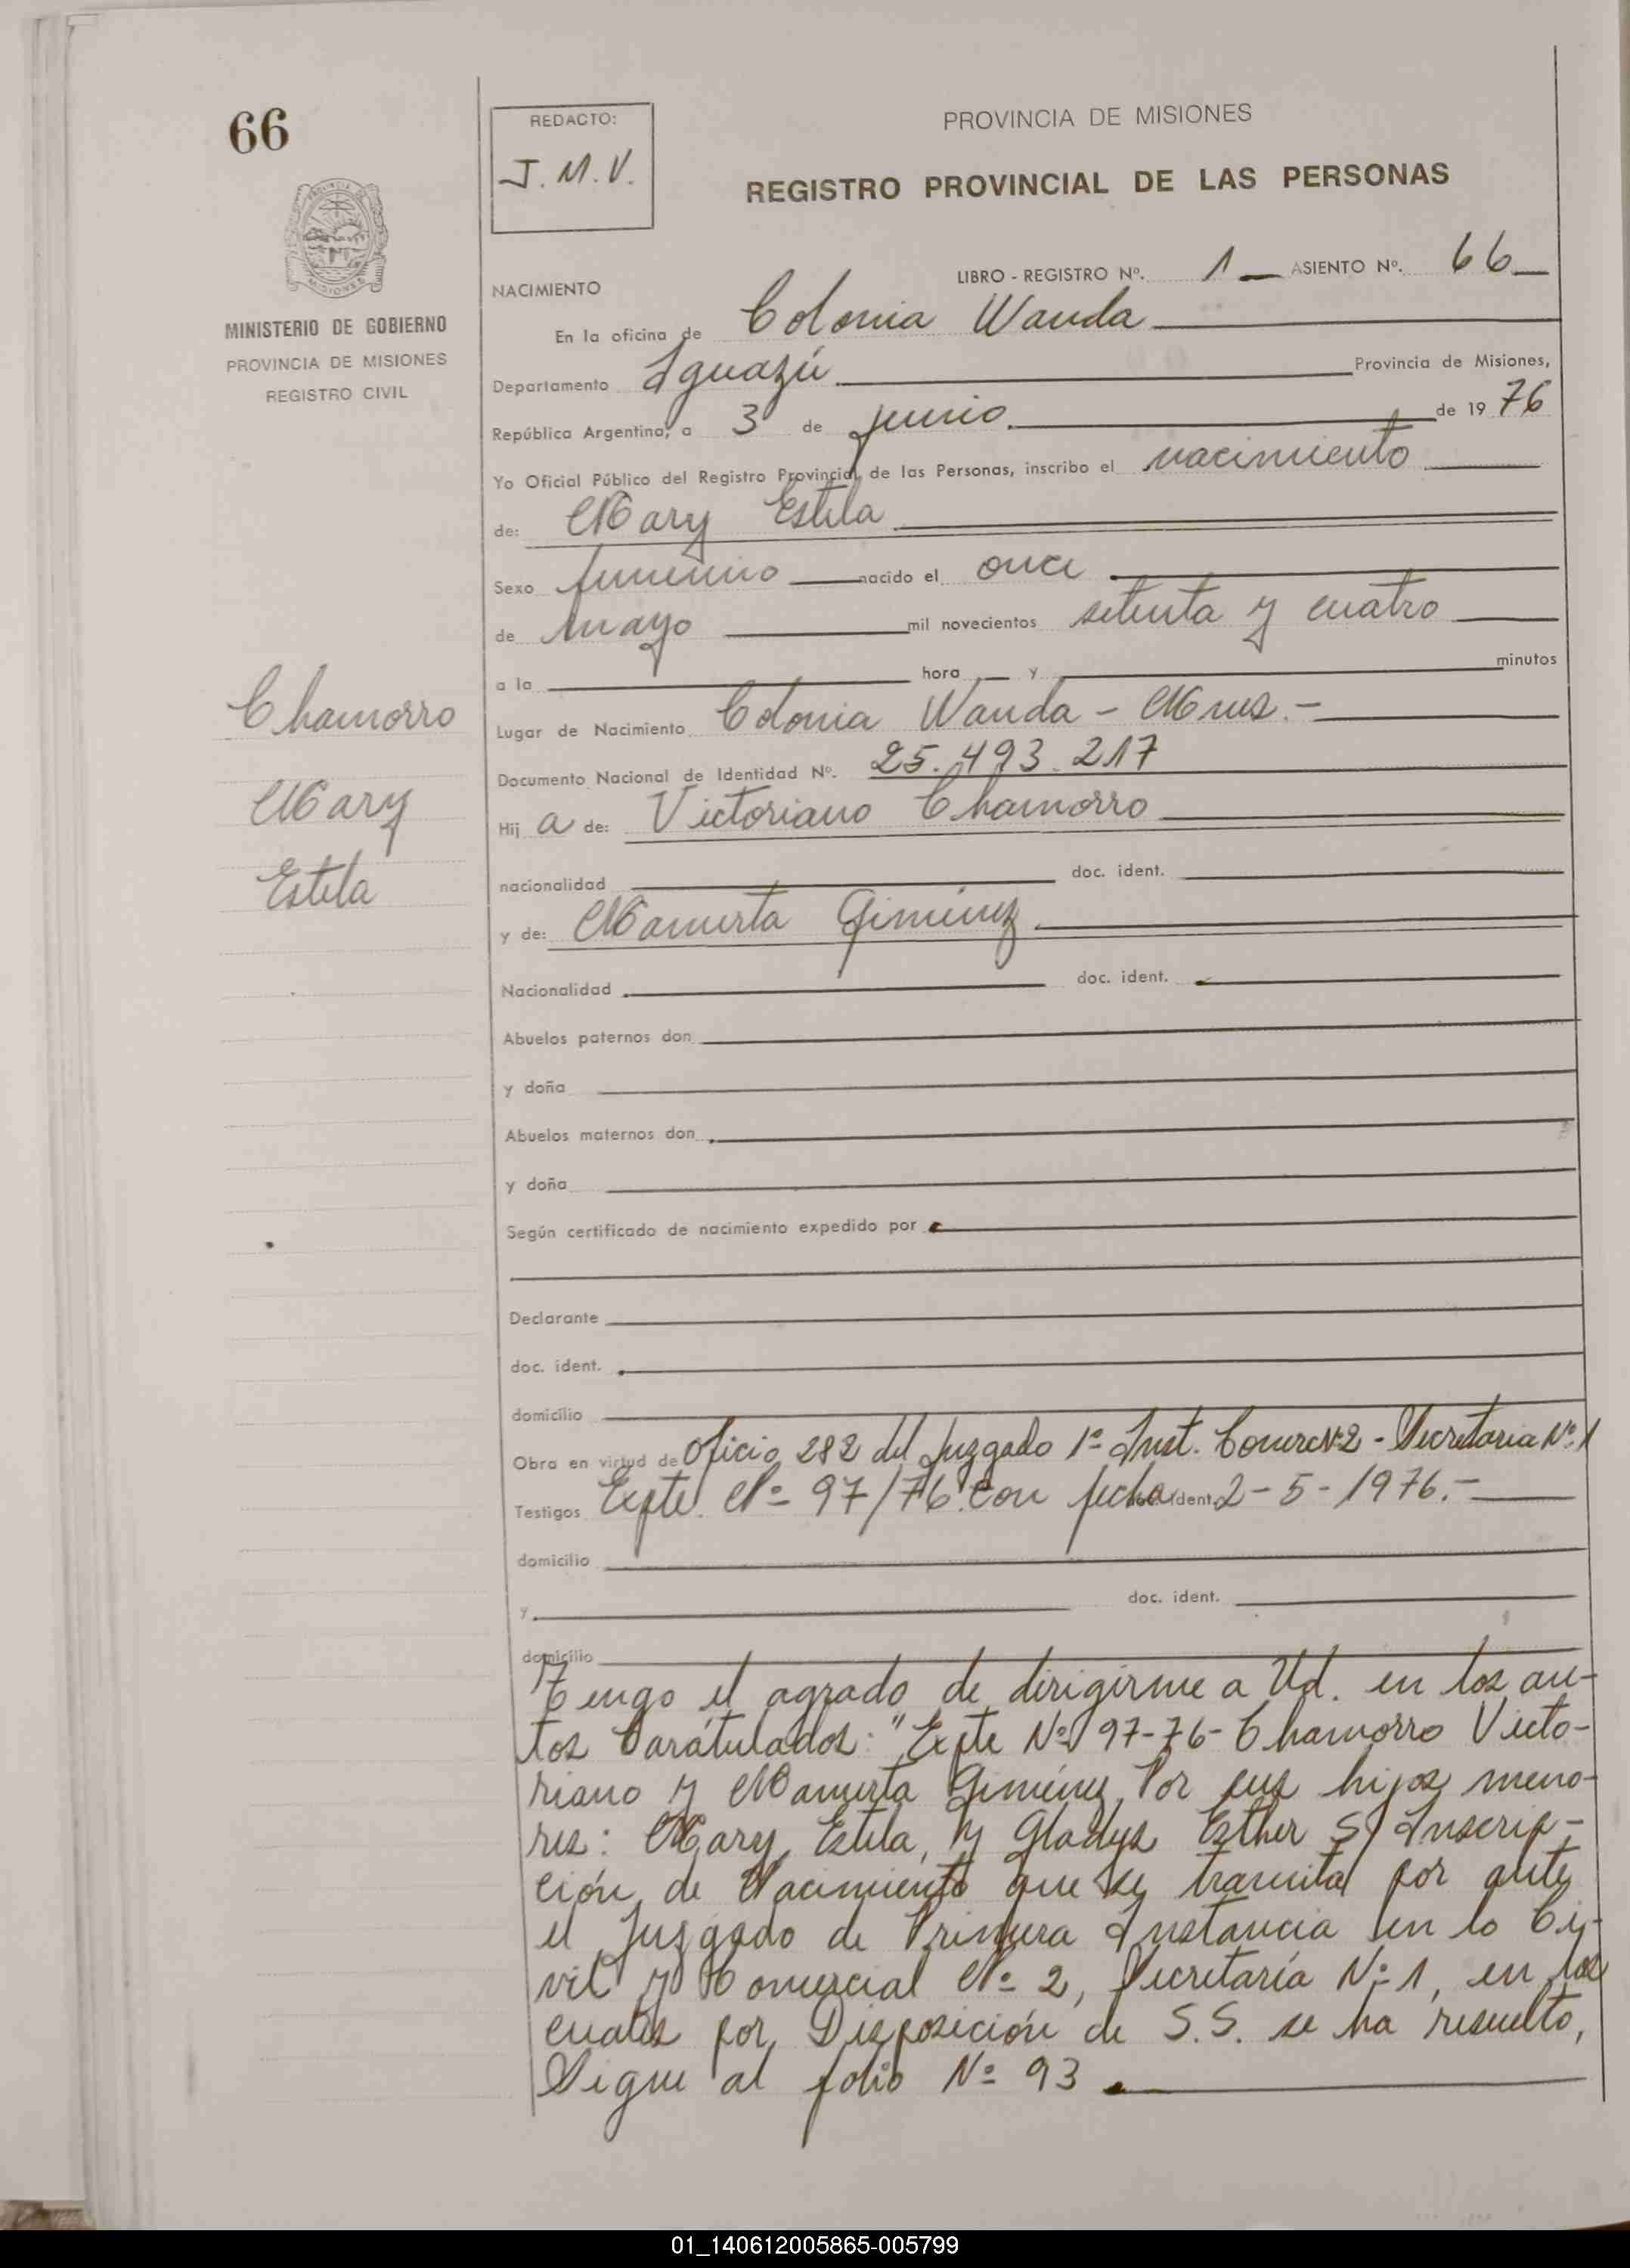 66
REDACTO:
J.M.V.
PROVINCIA DE MISIONES
REGISTRO PROVINCIAL DE LAS PERSONAS
MISIONES
MINISTERIO DE GOBIERNO
PROVINCIA DE MISIONES
REGISTRO CIVIL
LIBRO - REGISTRO Nº. 1 ASIENTO Nº. 66
NACIMIENTO
En la oficina de Colonia Wanda
Departamento Iguazú Provincia de Misiones,
República Argentina, a 3 de junio de 19 76
Yo Oficial Público del Registro Provincial de las Personas, inscribo el nacimiento
de: Mary Estela
Sexo femenino nacido el once
de mayo mil novecientos setenta y cuatro
a la hora y minutos
Chamorro
Mary
Estela
Lugar de Nacimiento Colonia Wanda - Mnes.-
Documento Nacional de Identidad Nº. 25.493.217
Hij a de: Victoriano Chamorro
nacionalidad doc. ident.
y de: Mamerta Giménez
Nacionalidad doc. ident.
Abuelos paternos don
y doña
Abuelos maternos don
y doña
Según certificado de nacimiento expedido por
Declarante
doc. ident.
domicilio
Obra en virtud de Oficio 282 del Juzgado 1ª Inst. Comerc Nº 2 - Secretaria Nº 1
Testigos Expte. Nº 97/76 con fecha ident. 2-5-1976.-
domicilio
y doc. ident.
domicilio
Tengo el agrado de dirigirme a Ud. en los au-
tos Carátulados: "Expte Nº 97-76- Chamorro Victo-
riano y Mamerta Giménez Por sus hijos meno-
res: Mary Estela, y Gladys Esther S/ Inscrip-
ción de Nacimiento que se tramita por ante
el Juzgado de Primera Instancia en lo Ci-
vil y Comercial Nº 2, Secretaría Nº 1, en los
cuales por Disposición de S.S. se ha resuelto,
Sigue al folio Nº 93
01_140612005865-005799